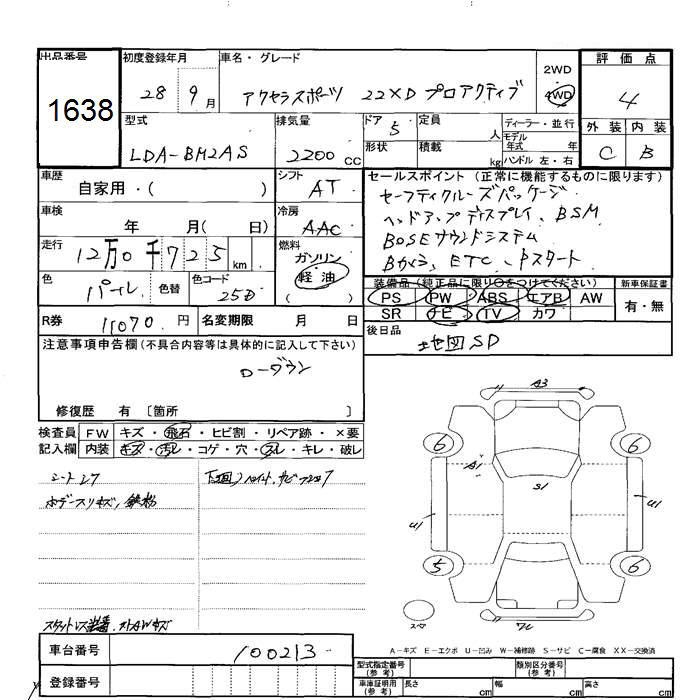 出品番号
1638
初度登録年月
28 9月
車名・グレード
アクセラスポーツ 22XD プロアクティブ
2WD
4WD
評価点
4
外装 内装
C B
型式
LDA-BM2AS
排気量
2200 cc
ドア 5
形状
定員 人
積載 kg
ディーラー・並行
モデル年式 年
ハンドル 左・右
車歴
自家用・( )
シフト
AT
車検
年 月( 日)
冷房
AAC
走行
12万0千725 km
燃料
ガソリン
軽油
( )
色
パール
色替
色コード
25D
R券
11070 円
名変期限 月 日
セールスポイント (正常に機能するものに限ります)
セーフティクルーズパッケージ
ヘッドアップディスプレイ、BSM
BOSEサウンドシステム
Bカメラ、ETC、Pスタート
装備品(純正品に限り○をつけてください)
PS PW ABS エアB AW
SR ナビ TV カワ
新車保証書
有・無
後日品
地図SD
注意事項申告欄(不具合内容等は具体的に記入して下さい)
ローダウン
修復歴 有 〔箇所 〕
検査員記入欄
FW キズ・飛石・ヒビ割・リペア跡・×要
内装 キズ・汚レ・コゲ・穴・スレ・キレ・破レ
シートスレ
ボデースリキズ、鉄粉
スタットレス装着
A3
6 6
A1
S1
U1 U1
5 6
スペア
A-キズ E-エクボ U-凹み W-補修跡 S-サビ C-腐食 XX-交換済
車台番号
100213
登録番号
型式指定番号(参考)
類別区分番号(参考)
車庫証明用(参考)
長さ cm
幅 cm
高さ cm